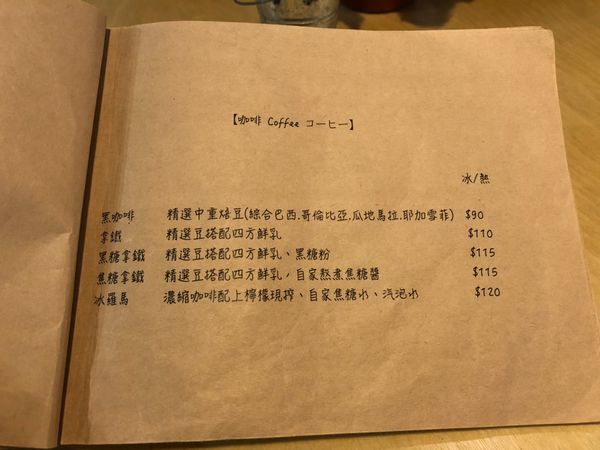 【咖啡 Coffee コーヒー】
冰/熱
黑咖啡 精選中重焙豆(綜合巴西.哥倫比亞.瓜地馬拉.耶加雪菲) $90
拿鐵 精選豆搭配四方鮮乳 $110
黑糖拿鐵 精選豆搭配四方鮮乳、黑糖粉 $115
焦糖拿鐵 精選豆搭配四方鮮乳，自家熬煮焦糖醬 $115
冰羅馬 濃縮咖啡配上檸檬現搾、自家焦糖水、汽泡水 $120